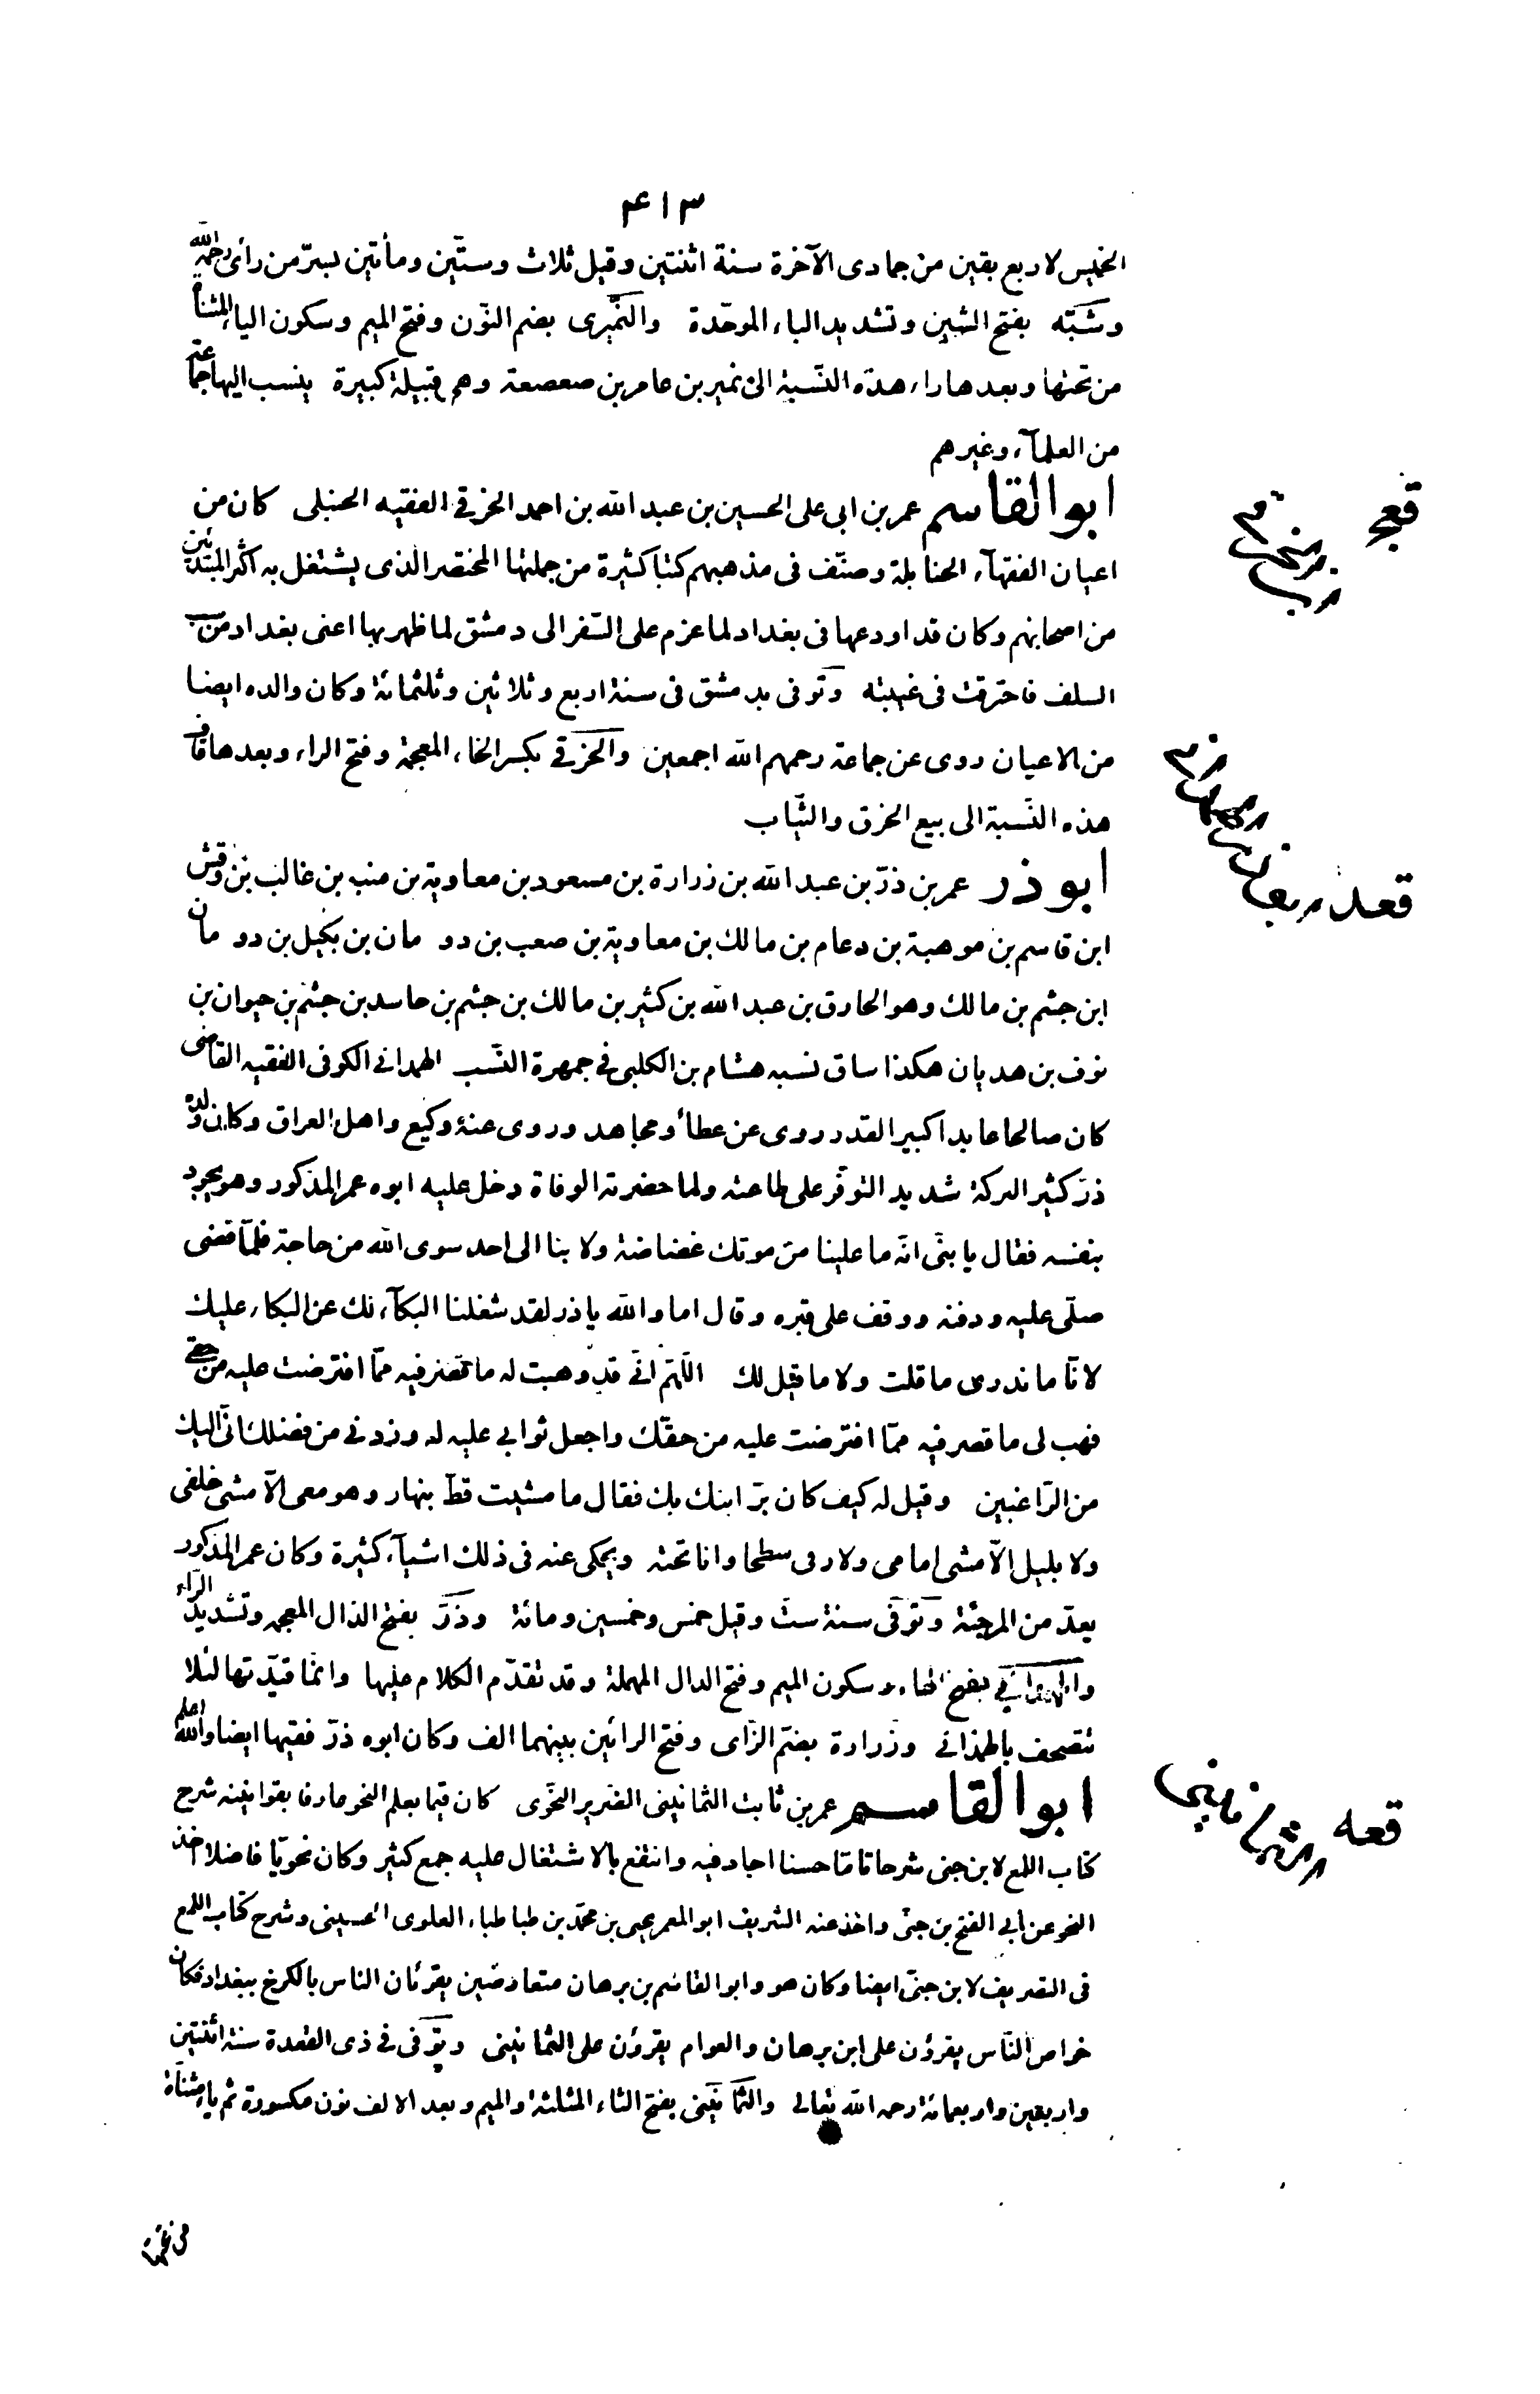 ٤١٣
الخميس لاربع بقين من جمادى الآخرة سنة اثنتين وقيل ثلاث وستّين ومأتين بسرّ من رأى رحمه الله
وشبّه بفتح الشين وتشديد الباء الموحّدة والنّميرى بضم النّون وفتح الميم وسكون الياء المثناة
من تحتها وبعدها راء هذه النّسبة الى نمير بن عامر بن صعصعة وهم قبيلة كبيرة ينسب اليها جماعة
من العلمآء وغيرهم
ابو القاسم عمر بن ابى على الحسين بن عبد الله بن احمد الخرقي الفقيه الحنبلى كان من
اعيان الفقهآء الحنابلة وصنّف فى مذهبهم كتبا كثيرة من جملتها المختصر الذى يشتغل به اكثر المبتدئين
من اصحابهم وكان قد اودعها فى بغداد لما عزم على السّفر الى دمشق لما ظهر بها اعنى بغداد من سب
السلف فاحترقت فى غيبته وتوفى بدمشق فى سنة اربع وثلاثين وثلثمائة وكان والده ايضا
من الاعيان روى عن جماعة رحمهم الله اجمعين والخرقي بكسر الخاء المعجمة وفتح الراء وبعدها قاف
هذه النّسبة الى بيع الخرق والثّياب
ابو ذر عمر بن ذرّ بن عبد الله بن زرارة بن مسعود بن معاوية بن منب بن غالب بن وقش
ابن قاسم بن موهبة بن دعام بن مالك بن معاوية بن صعب بن دو مان بن بكيل بن دو مان
ابن جشم بن مالك وهو الحارق بن عبد الله بن كثير بن مالك بن جشم بن حاسد بن جشم بن حيوان بن
نوف بن هديان هكذا ساق نسبه هشام بن الكلبى في جمهرة النّسب الهمداني الكوفى الفقيه القاضى
كان صالحا عابدا كبير القدر روى عن عطأ ومجاهد وروى عنه وكيع واهل العراق وكان ولده
ذرّ كثير البركة شديد التوفّر على طاعته ولما حضرته الوفاة دخل عليه ابوه عمر المذكور وهو يجود
بنفسه فقال يا بنّى انّه ما علينا من موتك غضاضة ولا بنا الى احد سوى الله من حاجة فلمّا قضى
صلّى عليه ودفنه ووقف على قبره وقال اما والله يا ذر لقد شغلنا البكآء لك عن البكاء عليك
لانّا ما ندرى ما قلت ولا ما قيل لك اللّهمّ انّي قد وهبت له ما قصر فيه ممّا افترضت عليه من حقّي
فهب لى ما قصر فيه ممّا افترضت عليه من حقّك واجعل ثوابي عليه له وزدني من فضلك انّى اليك
من الرّاغبين وقيل له كيف كان برّ ابنك بك فقال ما مشيت قطّ بنهار وهو معى الّا مشى خلفى
ولا بليل الّا مشى امامى ولا رقى سطحا وانا تحته ويحكى عنه فى ذلك اشيآء كثيرة وكان عمر المذكور
يعدّ من المرجئة وتوفّى سنة ستّ وقيل خمس وخمسين ومائة وذرّ بفتح الذال المعجمه وتشديد الرّاء
والهمداني بفتح الهاء وسكون الميم وفتح الدال المهملة وقد تقدّم الكلام عليها وانّما قيّدتها لئلا
تتصحف بالهمذاني وزرارة بضمّ الزّاى وفتح الرائين بينهما الف وكان ابوه ذرّ فقيها ايضا والله اعلم
ابو القاسم عمر بن ثابت الثمانينى الضرير النحوى كان قيما بعلم النحو عارفا بقوانينه شرح
كتاب اللمع لابن جنى شرحا تامّا حسنا اجاد فيه وانتفع بالاشتغال عليه جمع كثير وكان نحويّا فاضلا اخذ
النحو عن أبي الفتح بن جنّى واخذ عنه الشريف ابو المعمر يحيى بن محمّد بن طباطباء العلوى الحسينى وشرح كتاب اللمع
فى التصريف لابن جنّى ايضا وكان هو وابو القاسم بن برهان متعارضين يقرئان الناس بالكرخ ببغداد فكان
خواص النّاس يقرؤن على ابن برهان والعوام يقرؤن على الثمانينى وتوفى في ذى القعدة سنة اثنتين
واربعين واربعمائة رحمه الله تعالى والثّمانينى بفتح الثاء المثلثة والميم وبعد الالف نون مكسورة ثم ياء مثناة